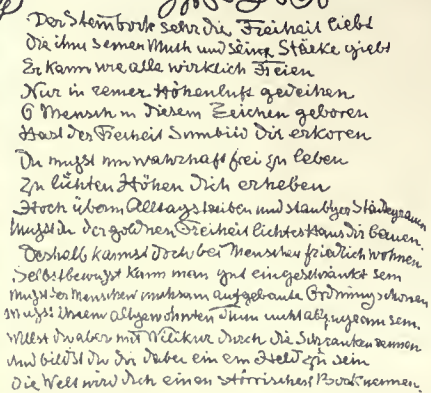 Der Steinbock sehr die Freiheit liebt
die ihm seinen Muth und seine Stärke giebt
Er kann wie alle wirklich Freien
Nur in reiner Höhenluft gedeihen
O Mensch in diesem Zeichen geboren
Hast der Freiheit Sinnbild dir erkoren
Du mußt um wahrhaft frei zu leben
Zu lichten Höhen dich erheben
Hoch überm Alltagstreiben und staubigen
Mußt du der goldnen Freiheit lichtes Haus dir bauen.
Deshalb kannst doch bei Menschen friedlich wohnen
Selbstbewußt kann man gut eingeschränkt sein
Mußt der Menschen mühsam aufgebaute Ordnung schonen
Mußt ihrem altgewohnten Thun nicht allzu gram sein.
Willst du aber mit Willkür durch die Schranken rennen
und bildst du dir dabei ein ein Held zu sein
Die Welt wird dich einen störrischen Bock nennen.